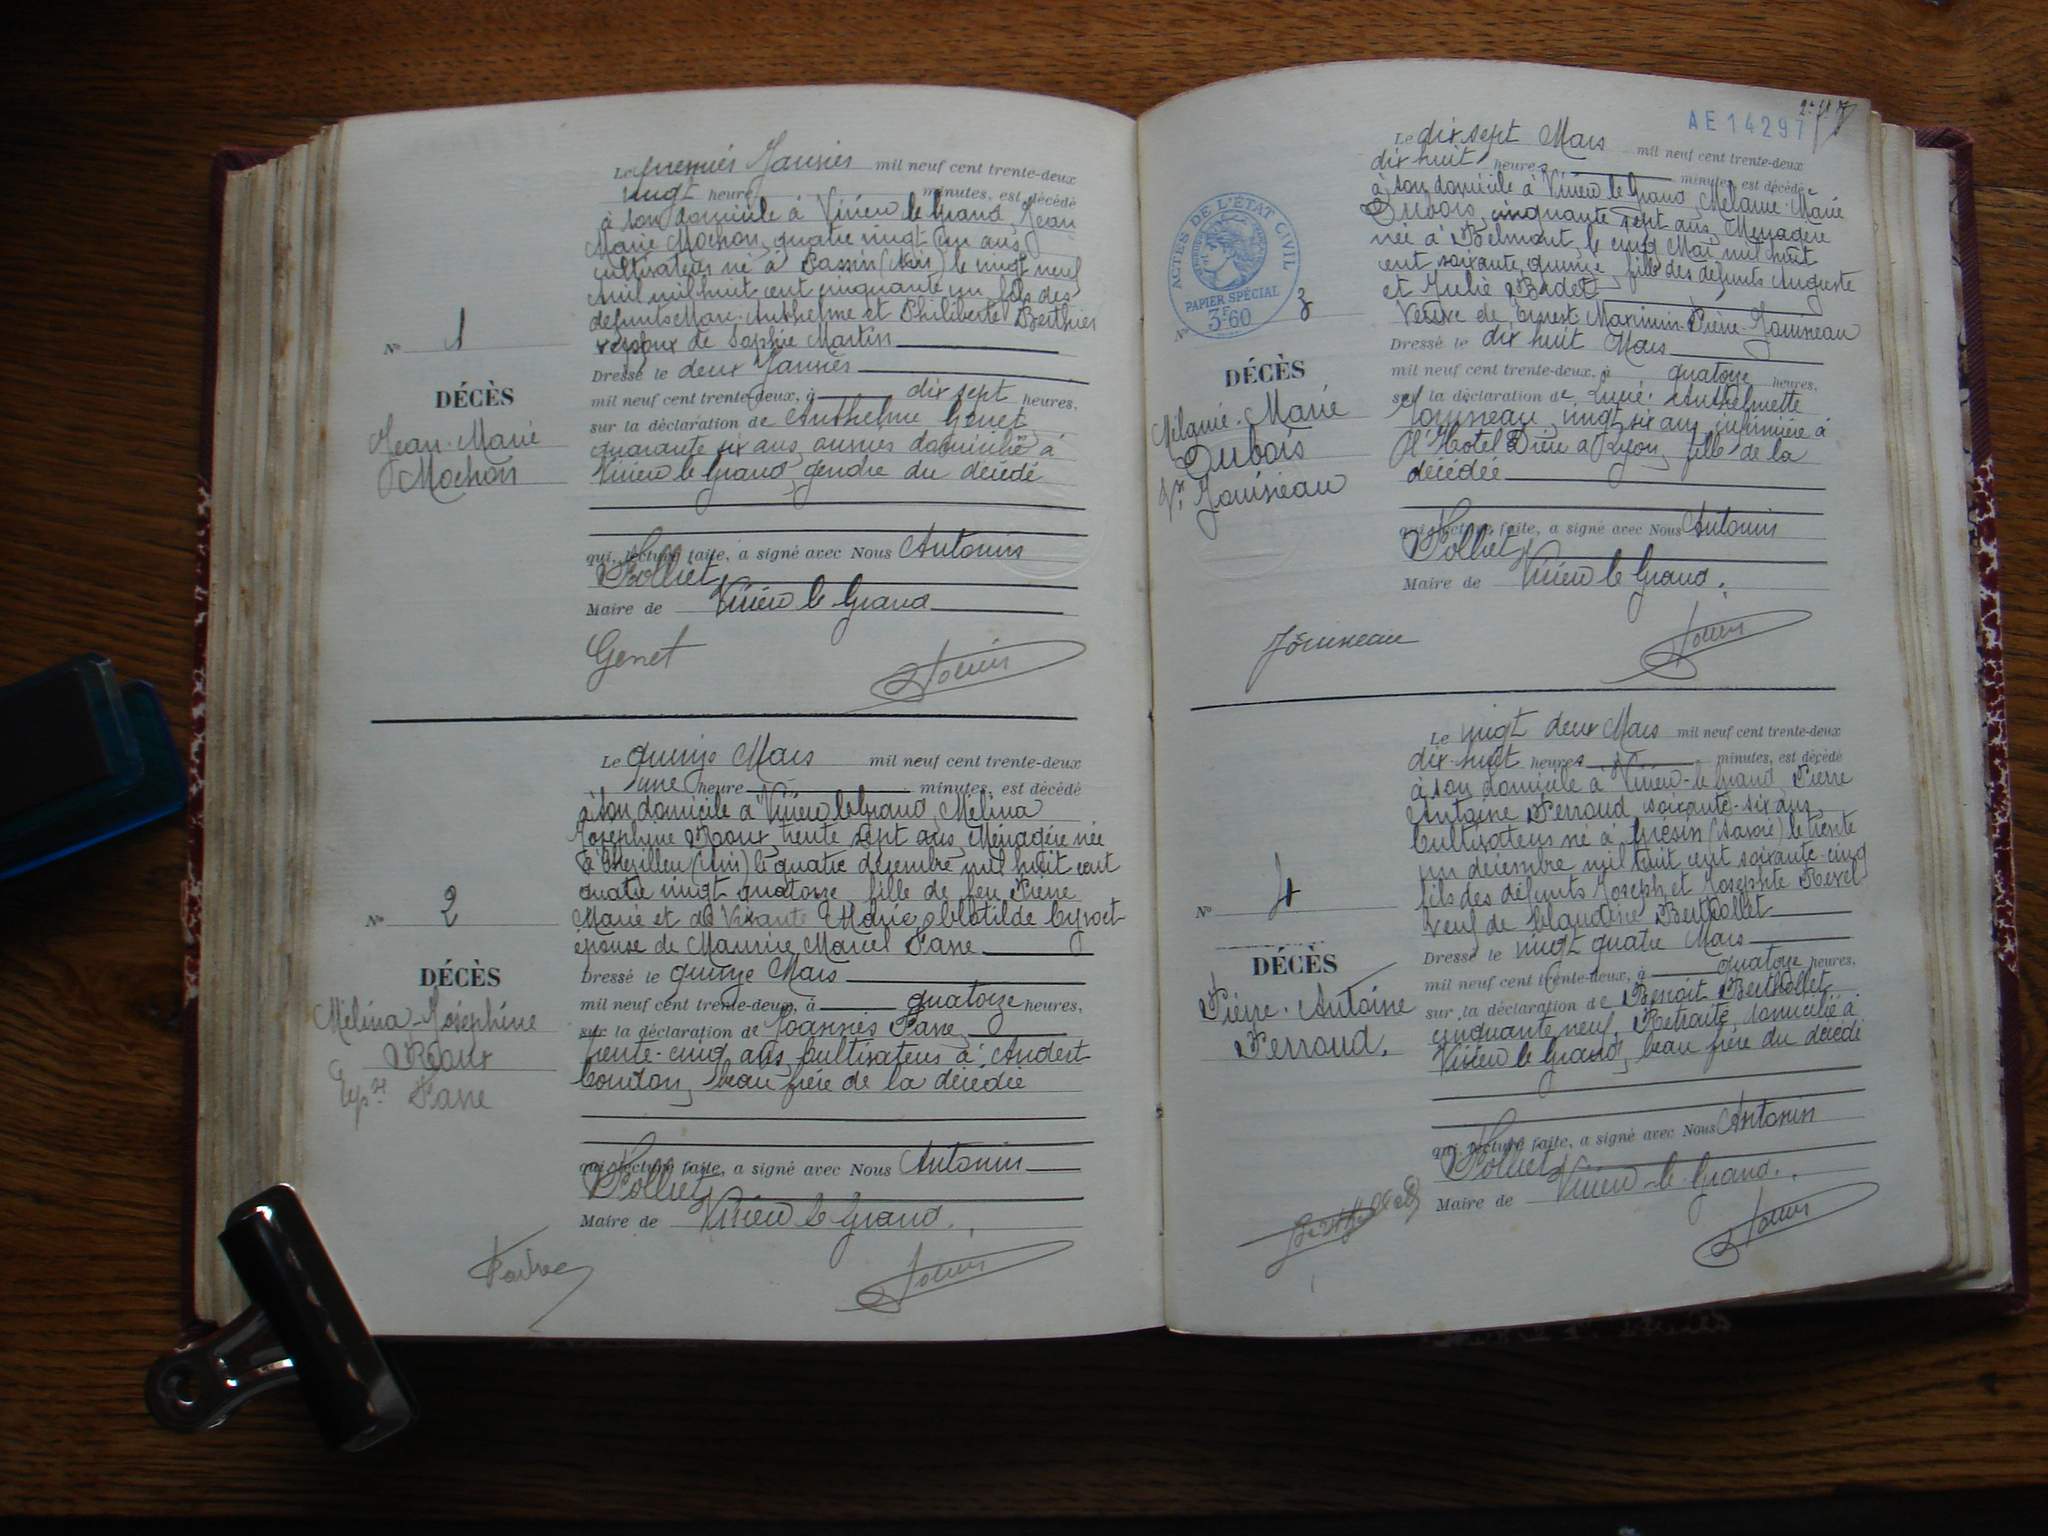 Le premier Janvier mil neuf cent trente-deux
vingt heures minutes, est décédé
à son domicile à Virieu le Grand, Jean
Marie Mochon, quatre vingt un ans,
cultivateur né à Passin (Ain) le vingt neuf
Avril mil huit cent cinquante un fils des
défunts Marc-Anthelme et Philiberte Berthier
époux de Sophie Martin
Dressé le deux Janvier
mil neuf cent trente-deux, à dix sept heures,
sur la déclaration de Anthelme Genet
quarante six ans, domicilié à
Virieu le Grand, gendre du décédé
qui, lecture faite, a signé avec Nous Antonin
Polliet
Maire de Virieu le Grand
Genet
No 1
DÉCÈS
Jean-Marie
Mochon
Le quinze Mars mil neuf cent trente-deux
une heure minutes, est décédé
à son domicile à Virieu le Grand, Mélina
Joséphine Roux, trente sept ans, Ménagère née
à (Ain) le quatre décembre mil huit cent
quatre vingt quatorze fille de feu Pierre
Marie et de Vivante Marie Clotilde Cyvoct
épouse de Maurice Marcel Passe
Dressé le quinze Mars
mil neuf cent trente-deux, à quatorze heures,
sur la déclaration de Joannès Passe
trente-cinq ans, cultivateur à Andert
Condon, beau frère de la décédée
qui, lecture faite, a signé avec Nous Antonin
Polliet
Maire de Virieu le Grand.
No 2
DÉCÈS
Mélina-Joséphine
Roux
Ép.se Passe
AE 14297
Le dix sept Mars mil neuf cent trente-deux
dix huit heures minutes, est décédée
à son domicile à Virieu le Grand, Mélanie-Marie
Dubois, cinquante sept ans, Ménagère
née à Belmont, le cinq Mai mil huit
cent soixante quinze, fille des défunts Auguste
et Julie Bidet
Veuve de Ernest Maximin-Pierre-Jouineau
Dressé le dix huit Mars
mil neuf cent trente-deux, à quatorze heures,
sur la déclaration de Lucie Anthelmette
Jouineau, vingt six ans, infirmière à
l'Hotel Dieu à Lyon, fille de la
décédée
qui, lecture faite, a signé avec Nous Antonin
Polliet
Maire de Virieu le Grand.
Jouineau
ACTES DE L'ÉTAT CIVIL
PAPIER SPÉCIAL
3F60
No 3
DÉCÈS
Mélanie-Marie
Dubois
Vve Jouineau
Le vingt deux Mars mil neuf cent trente-deux
dix-huit heures minutes, est décédé
à son domicile à Virieu-le-Grand, Pierre
Antoine Perroud, soixante-six ans,
Cultivateur né à (Savoie) le trente
un décembre mil huit cent soixante-cinq
fils des défunts Joseph et Josephte Revel
veuf de Claudine Berthollet
Dressé le vingt quatre Mars
mil neuf cent trente-deux, à quatorze heures,
sur la déclaration de Benoit Berthollet
cinquante neuf, Retraité, domicilié à
Virieu le Grand, beau frère du décédé
qui, lecture faite, a signé avec Nous Antonin
Polliet
Maire de Virieu-le-Grand.
Berthollet
No 4
DÉCÈS
Pierre-Antoine
Perroud.